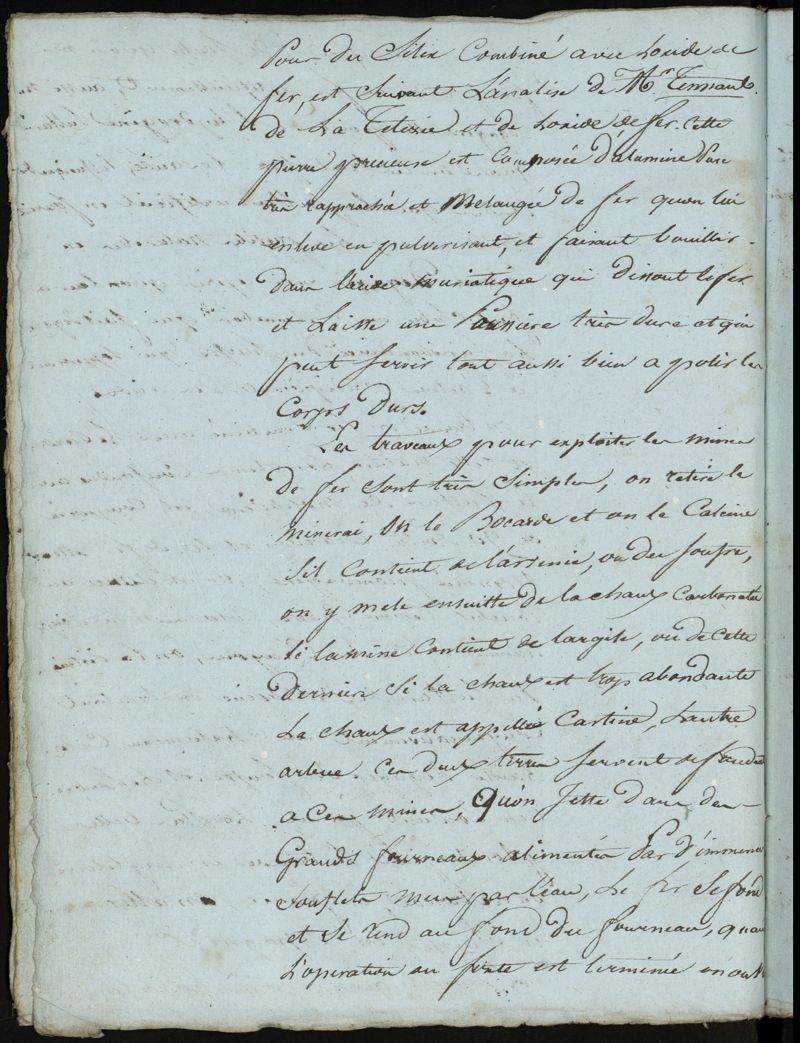 Pour du Silex Combiné avec Loxide de
fer, est Suivant L'analise de Mr. Tennant.
de La et de Loxide de fer. Cette
pierre precieuse est Composée d'alumine Pure
très rapproché et Mélangée de fer qu'on lui
enleve en pulverisant, et faisant bouillir
dans lacide muriatique qui dissout le fer
et Laisse une Poussière très dure et qui
peut servir tout aussi bien a polir les
Corps Durs.
Les travaux pour exploiter les mines
de fer sont très Simples, on retire le
minerai, on le Bocarde et on le Calcine
sil Contient de L'arsenic, ou du soufre,
on y mele ensuitte de la chaux Carbonatée
si la mine Contient de largile, ou de cette
derniere si la chaux est trop abondante
La chaux est appellée Castine, Lautre
arbue. Ces deux terres servent de fondan
a Ces mines, Quon Jette dans des
Grands fourneaux alimentés Par d'immenses
soufflets mus par l'eau, Le fer se fond
et se rend au fond du fourneau, quan
L'operation au est terminée on ouv